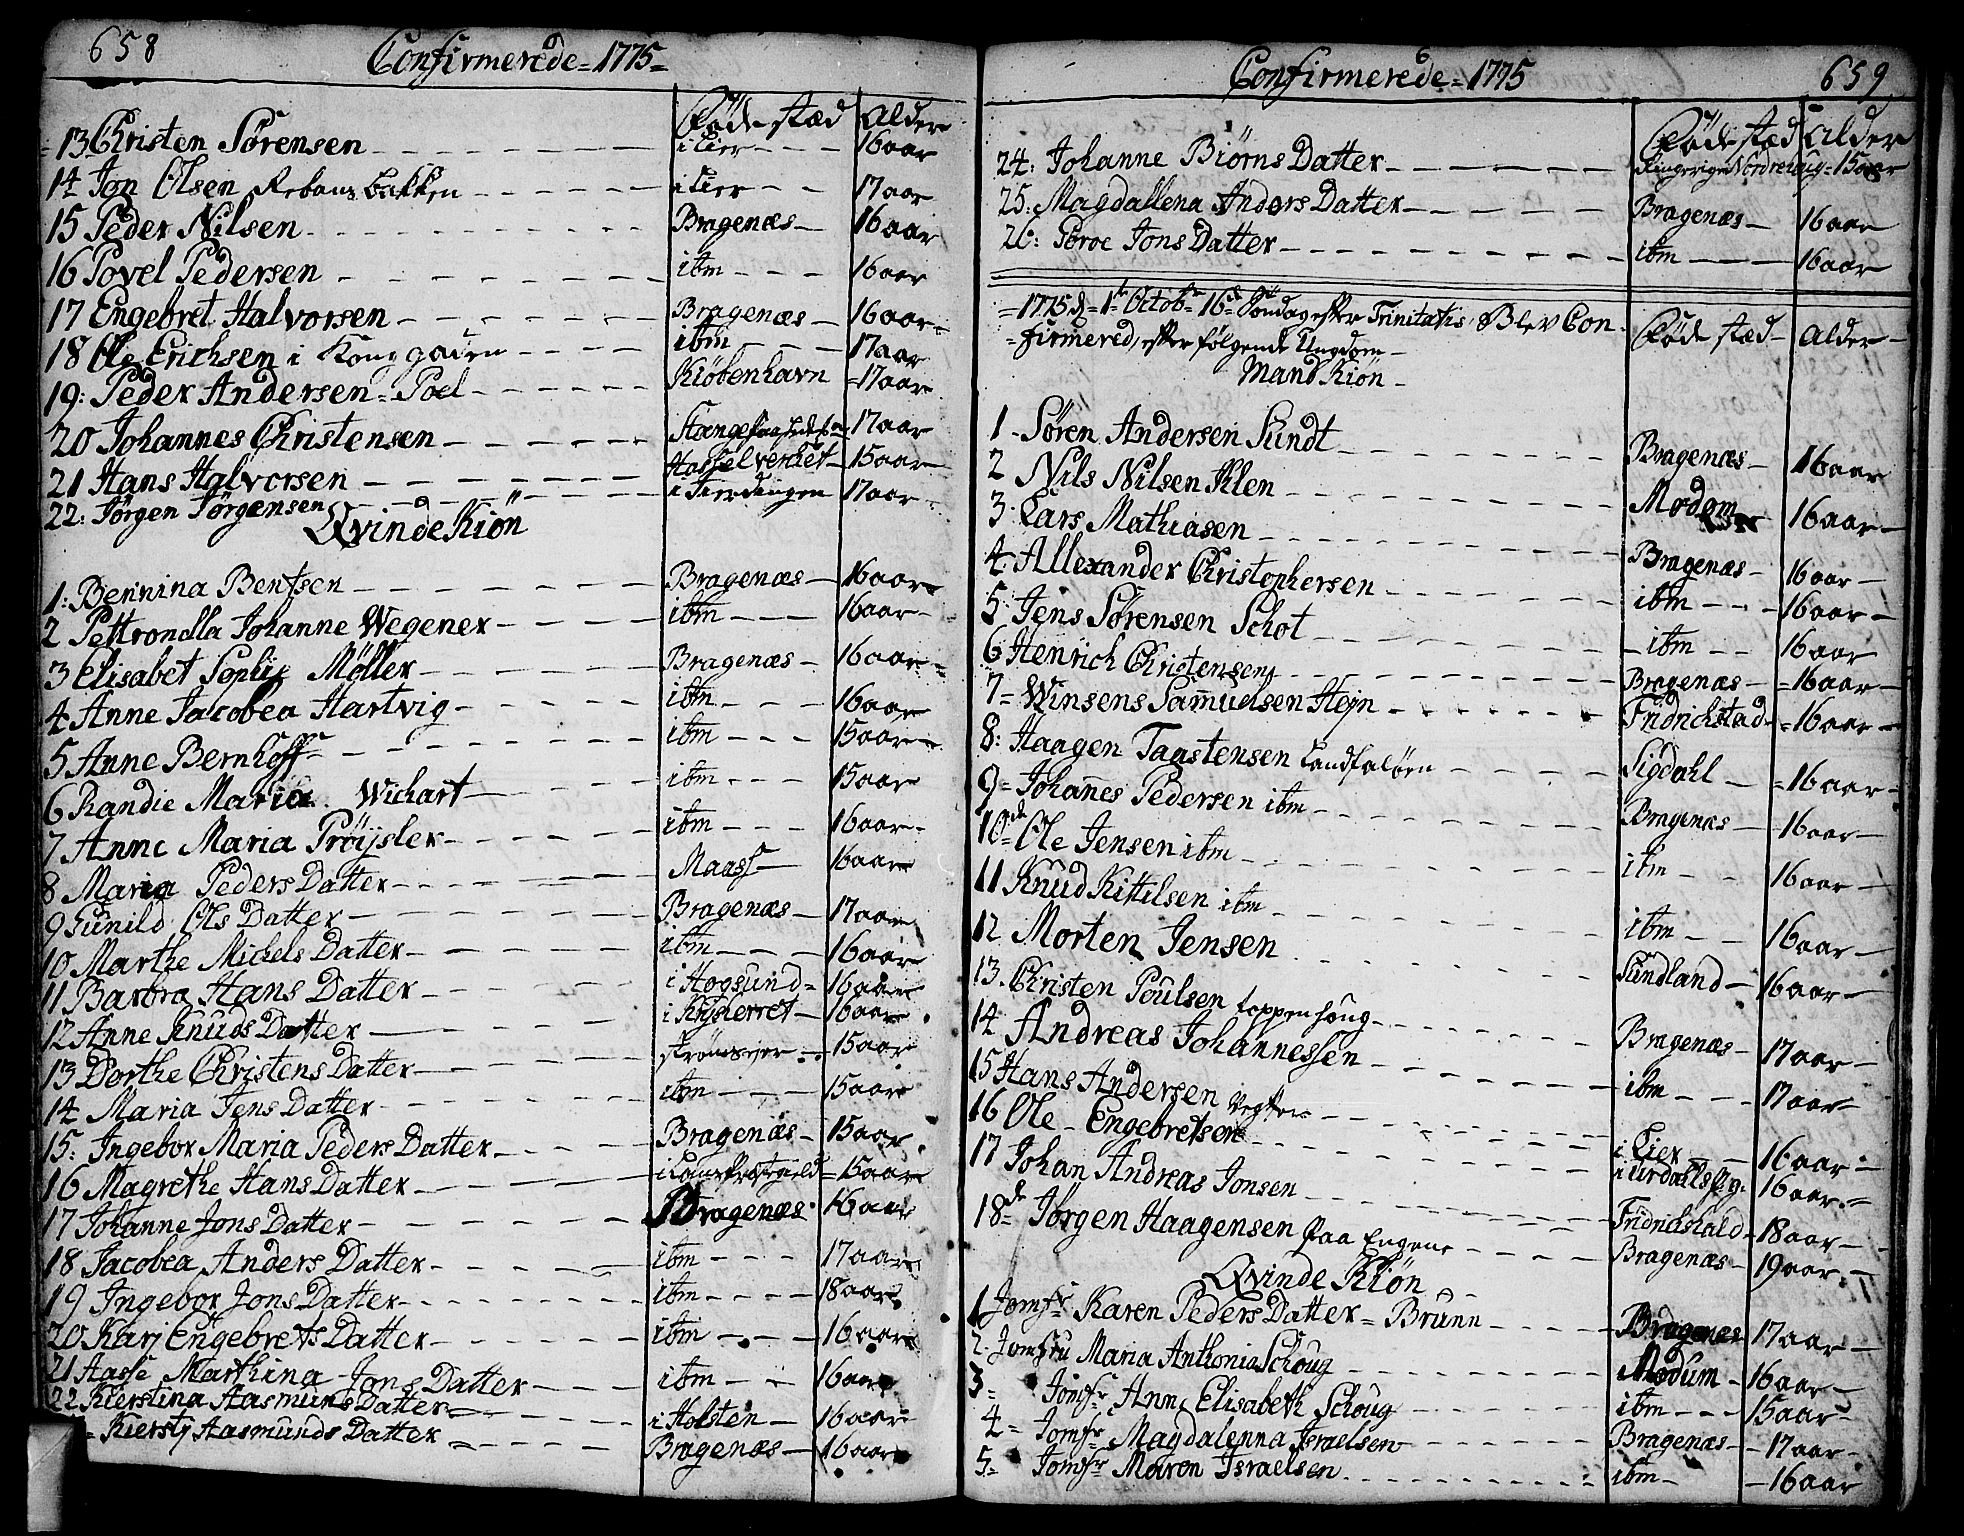 658 Confirmerede = 1775 =
Föde stæd Alder
13 Christen Sørensen i Lier 16 aar
14 Jon Olsen Rebans bakken i Lier 17 aar
15 Peder Nilsen Bragenæs 16 aar
16 Povel Pedersen ibm 16 aar
17 Engebret Halvorsen Bragenæs 16 aar
18 Ole Erichsen i Kong gaden ibm 17 aar
19: Peder Andersen = Poel Kiöbenhavn 17 aar
20 Johannes Christensen 17 aar
21 Hans Halvorsen Hassel verket 15 aar
22: Jørgen Jørgensen i Fierdingen 17 aar
Qvinde Kiön
1: Bennina Bentsen Bragenæs 16 aar
2 Pettronella Johanne Wegener ibm 16 aar
3 Elisabet Sophie Möller Bragenæs 16 aar
4 Anne Jacobea Hartvig ibm 16 aar
5 Anne Bernhoff ibm 15 aar
6 Randie Maria Wichart ibm 15 aar
7 Anne Maria Pröijsler ibm 16 aar
8 Maria Peders Datter Maass 16 aar
9 Gunild Ols Datter Bragenæs 17 aar
10 Marthe Michels Datter ibm 16 aar
11 Barbra Hans Datter i Hogsund 16 aar
12 Anne Knuds Datter 16 aar
13 Dorthe Christens Datter strömsöer 15 aar
14 Maria Jens Datter ibm 15 aar
15: Ingebor Maria Peders Datter Bragenæs 15 aar
16 Magrethe Hans Datter 15 aar
17 Johanne Jons Datter Bragenæs 16 aar
18 Jacobea Anders Datter ibm 17 aar
19 Ingebor Jons Datter ibm 18 aar
20 Kari Engebrets Datter ibm 16 aar
21 Aasse Marthina Jons Datter ibm 16 aar
22 Kierstina Aasmunds Datter i Holsten 16 aar
Kiersti Aasmunds Datter Bragenæs 16 aar
Confirmerede = 1775 659
Föde stæd Alder
24: Johanne Biörns Datter Ringerige Nordrehoug 15 aar
25: Magdallena Anders Datter Bragenæs 16 aar
26: Joroe Jons Datter ibm 16 aar
= 1775 d = 1te Octobr = 16de Söndag efter Trinitatis, Blev Con
= firmered, efter følgende Ungdom Föde stæd Alder
Mand Kiön
1 Søren Andersen Sundt Bragenæs 16 aar
2 Nils Nilsen Klen Modom 16 aar
3 Lars Mathiasen Bragenæs 16 aar
4 Allexander Christophersen ibm 16 aar
5 Jens Sørensen Schot ibm 16 aar
6 Henrich Christensen Bragenæs 16 aar
7 = Winsens Samuelsen Hejn Fridrichstad 16 aar
8: Haagen Taastensen Landfaløen Sigdahl 16 aar
9 = Johannes Pedersen ibm Bragenæs 16 aar
10de Ole Jensen ibm ibm 16 aar
11 Knud Kittilsen ibm ibm 16 aar
12 Morten Jensen Sundland 16 aar
13. Christen Poulsen toppenhoug Bragenæs 17 aar
14 Andreas Johannessen ibm 17 aar
15 Hans Andersen i Lier 16 aar
16 Ole Engebretsen 16 aar
17 Johan Andreas Jonsen Fridrichshald 18 aar
18de Jörgen Haagensen paa Engene Bragenæs 19 aar
Qvinde Kiön
1 Jomfr Karen Peders Datter = Brunn Bragenæs 17 aar
2. Jomfru Maria Anthonia Schoug Modum 16 aar
3 = Jomfr Anne Elisabeth Schoug ibm 15 aar
4 = Jomfr Magdalenna Israelsen Bragenæs 17 aar
5 = Jomfr Maren Israelsen ibm 16 aar